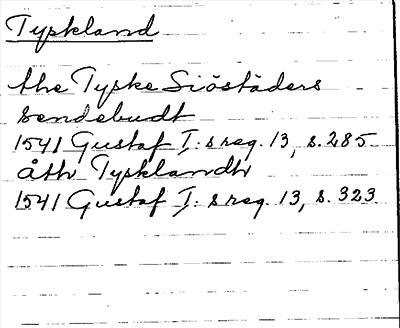 Tyskland
the Tyske Siöstäders
sendebudt
1541 Gustaf I:s reg. 13, s. 285
åth Tysklandh
1541 Gustaf I:s reg. 13, s. 323